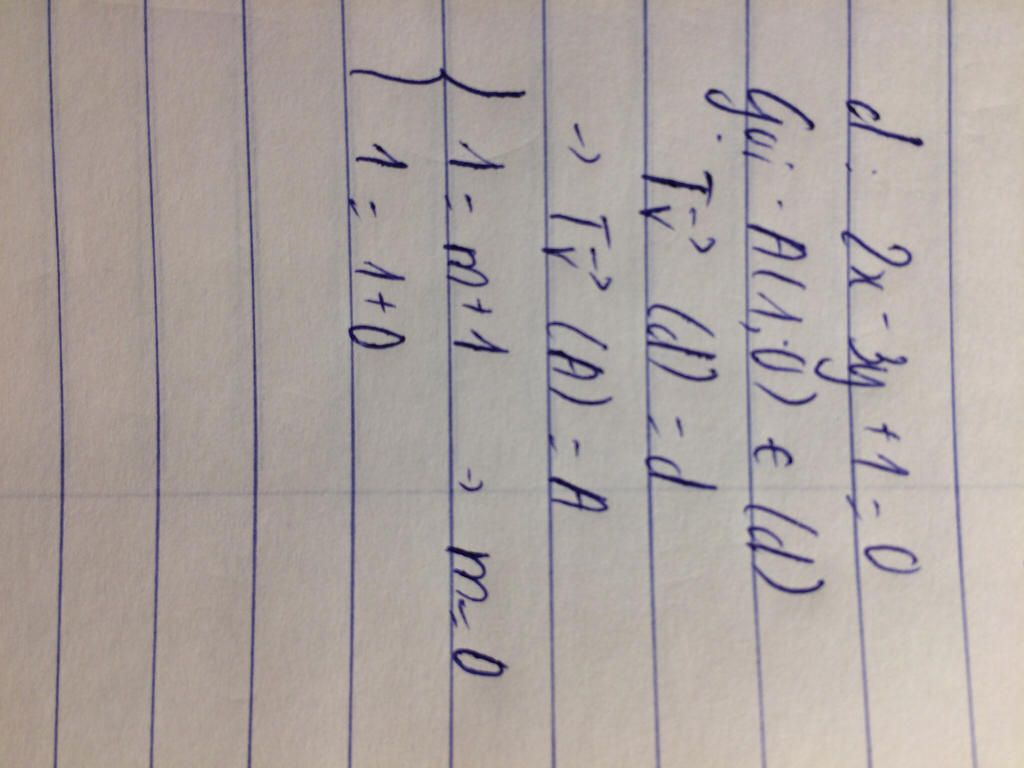 d: 2x - 3y + 1 = 0
Gọi A(1,0) ∈ (d)
Tv⃗ (d) = d
→ Tv⃗ (A) = A
{ 1 = m + 1 → m = 0
{ 1 = 1 + 0